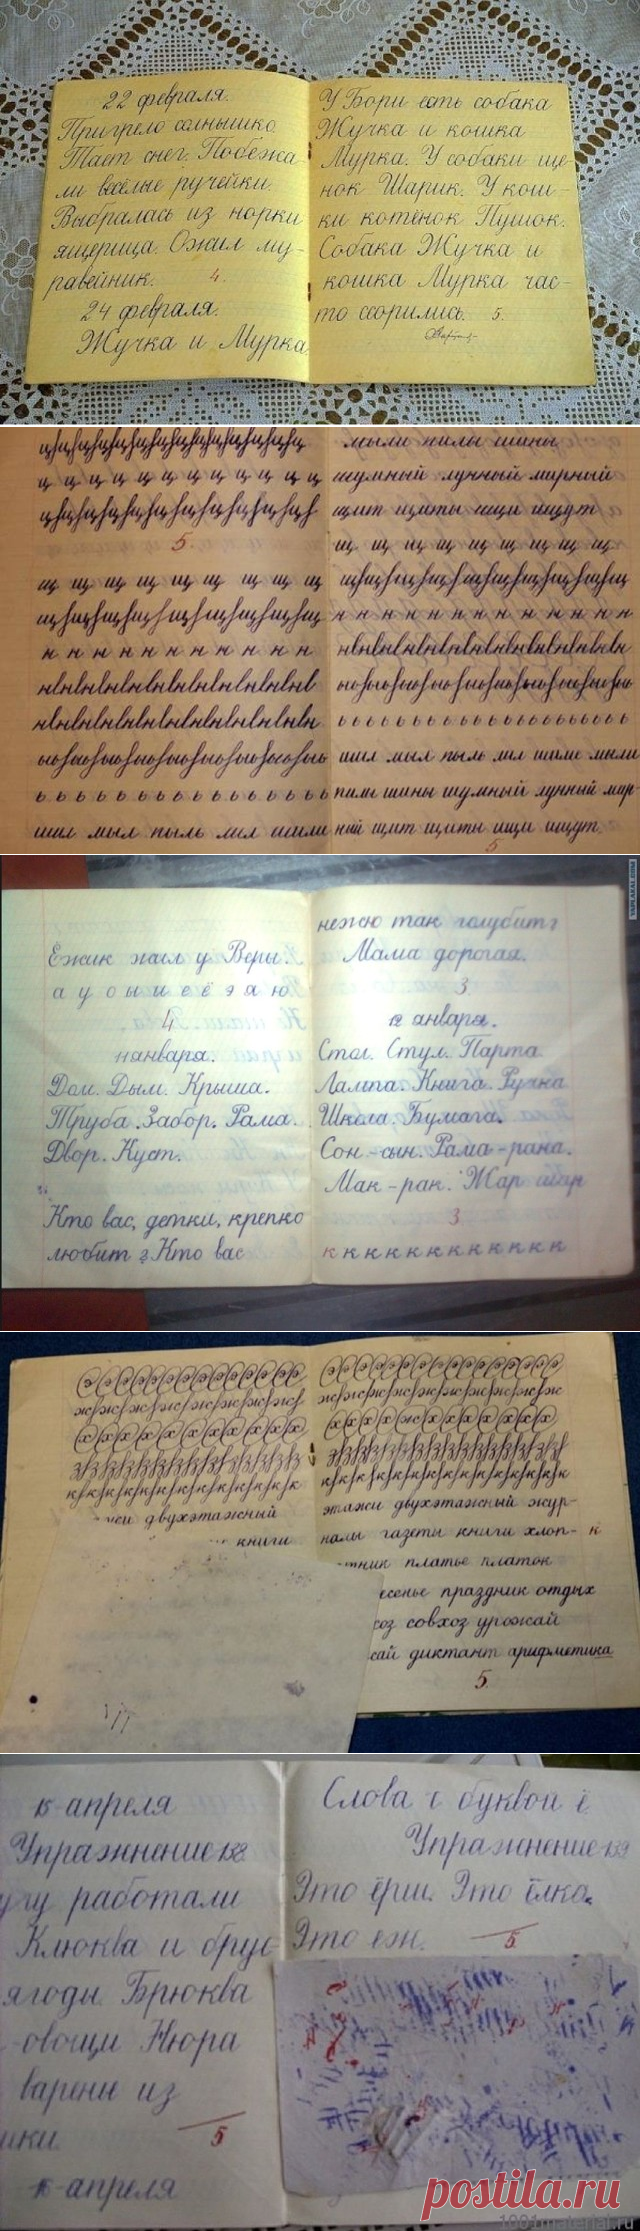 22 февраля.
Пригрело солнышко.
Тает снег. Побежа-
ли весёлые ручейки.
Выбралась из норки
ящерица. Ожил му-
равейник. 4.
24 февраля.
Жучка и Мурка
У Бори есть собака
Жучка и кошка
Мурка. У собаки ще-
нок Шарик. У кош-
ки котёнок Пушок.
Собака Жучка и
кошка Мурка час-
то ссорились. 5.
ц ц ц ц ц ц ц ц ц ц ц
5.
щ щ щ щ щ щ щ щ щ
н н н н н н н н н н н
ь ь ь ь ь ь ь ь ь ь ь ь ь ь ь ь
шил мыл пыль лил шили
мыли пилы шины
шумный лунный мирный
щит щиты ищи ищут
щ щ щ щ щ щ щ щ щ
н н н н н н н н н н н н н
ь ь ь ь ь ь ь ь ь ь ь ь ь ь ь ь ь
шил мыл пыль лил шили мыли
пилы шины шумный лунный мир-
ный щит щиты ищи ищут.
5
Ежик жил у Веры.
а у о ы и е ё э я ю
4
11 января.
Дом. Дым. Крыша.
Труба. Забор. Рама.
Двор. Куст.
Кто вас, детки, крепко
любит? Кто вас
нежно так голубит?
Мама дорогая.
3
12 января.
Стол. Стул. Парта.
Лампа. Книга. Ручка
Школа. Бумага.
Сон-сын. Рама-рана.
Мак-рак. Жар шар
3
к к к к к к к к к к к к
YAPLAKAL.COM
двухэтажный
книги
этажи двухэтажный жур-
налы газеты книги хлоп- к
тник платье платок
есенье праздник отдых
хоз совхоз урожай
сай диктант арифметика
5.
15 апреля
Упражнение 138.
угу работали
Клюква и брус
ягоди. Брюква
-овощи Нюра
варены из
ики.
5
15 апреля
Слова с буквой ё
Упражнение 139
Это ёрш. Это ёлка.
Это еж. 5
postila.ru
1001material.ru